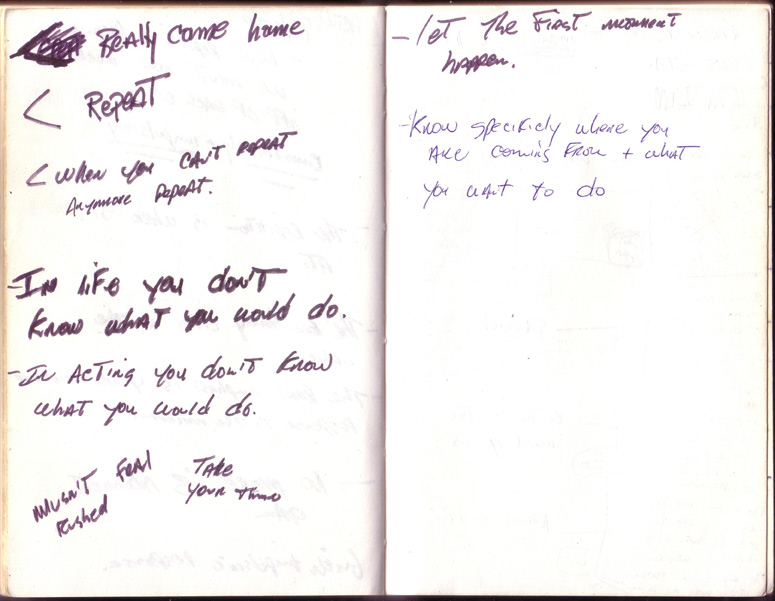 Really come home
< Repeat
< When you can't repeat
Anymore repeat.
- In life you don't
know what you would do.
- In acting you don't know
what you would do.
Musn't feal
Rushed
Take
your time
- let the first moment
happen.
- Know specificly where you
are coming from + what
you want to do